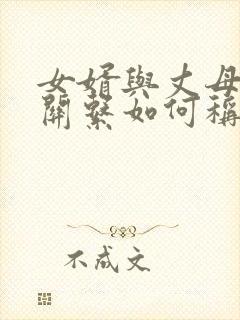 女婿與丈母
關繫如何稱
不成文